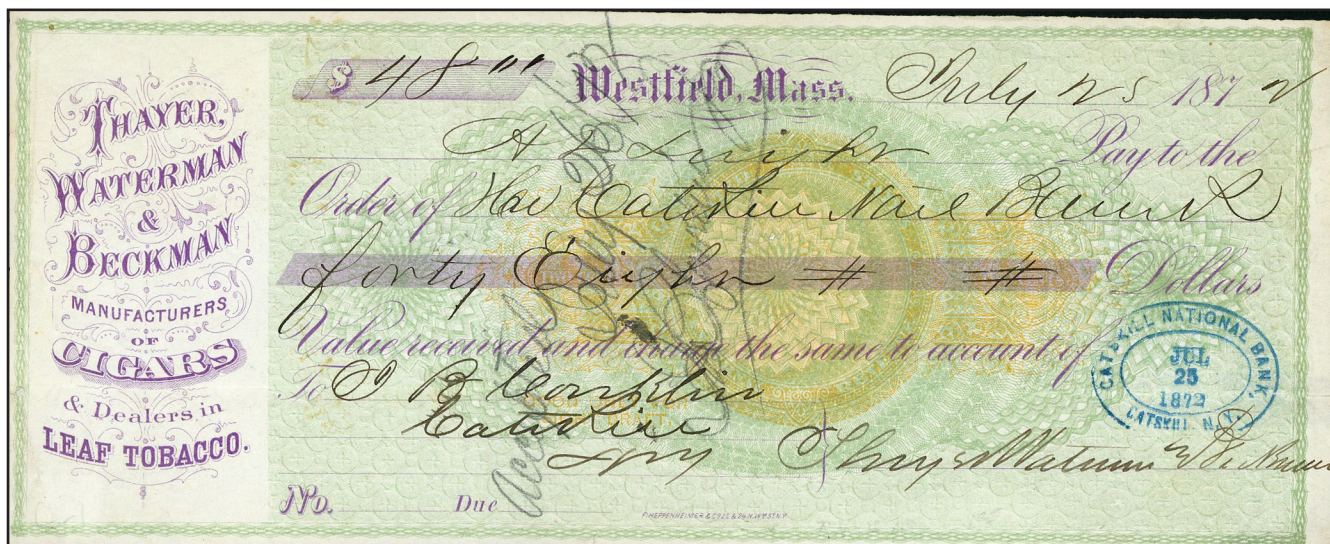 THAYER,
WATERMAN
&
BECKMAN
MANUFACTURERS
OF
CIGARS
& Dealers in
LEAF TOBACCO.
$ 48 00 Westfield, Mass. July 25 1872
At Sight Pay to the
Order of The Catskill Natl Bank
forty Eight # # Dollars
Value received and charge the same to account of
To B Conklin
Catskill
NY Thayer Waterman & Beckman
No. Due
CATSKILL NATIONAL BANK,
JUL
25
1872
CATSKILL, N.Y.